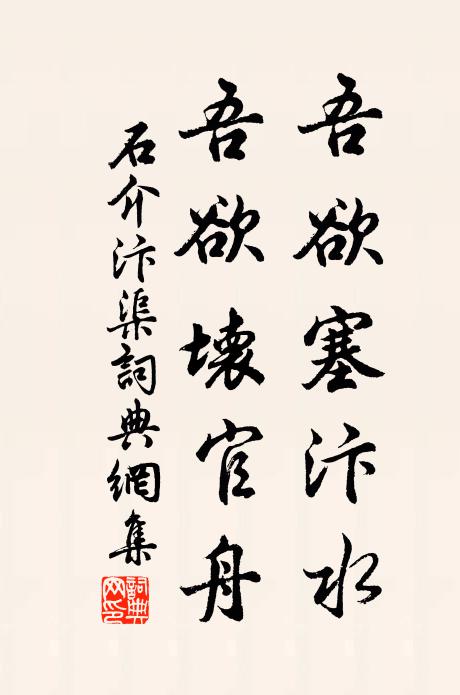 吾欲塞汴水
吾欲壞官舟
石介汴渠詞典網集
詞典网印